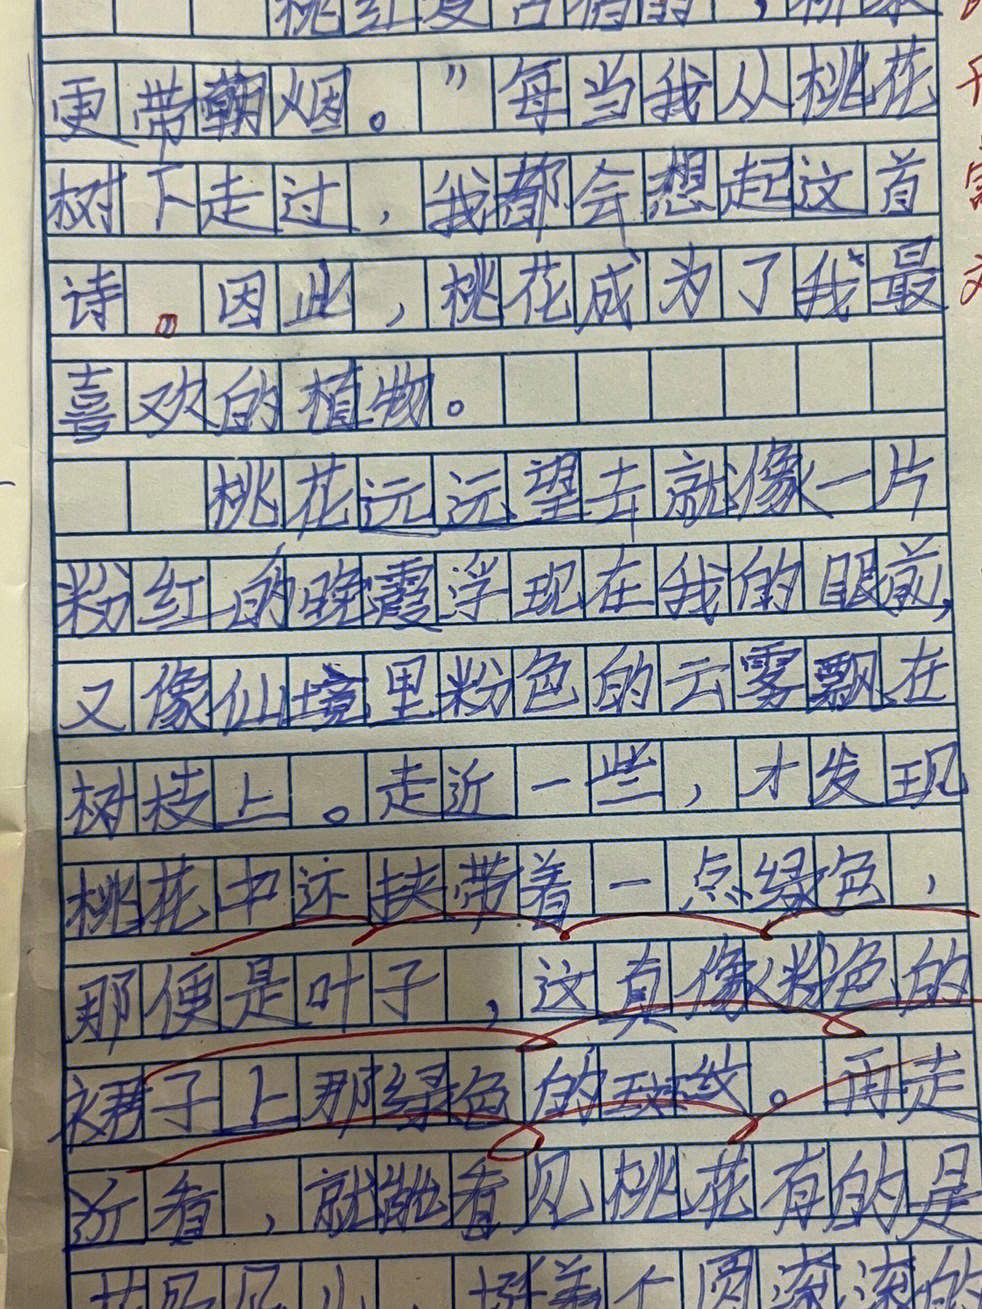 桃红复含宿雨，柳绿
更带朝烟。”每当我从桃花
树下走过，我都会想起这首
诗。因此，桃花成为了我最
喜欢的植物。
桃花远远望去就像一片
粉红的晚霞浮现在我的眼前，
又像仙境里粉色的云雾飘在
树枝上。走近一些，才发现
桃花中还挟带着一点绿色，
那便是叶子，这真像粉色的
裙子上那绿色的斑纹。再走
近看，就能看见桃花有的是
花骨朵儿，撑着个圆滚滚的